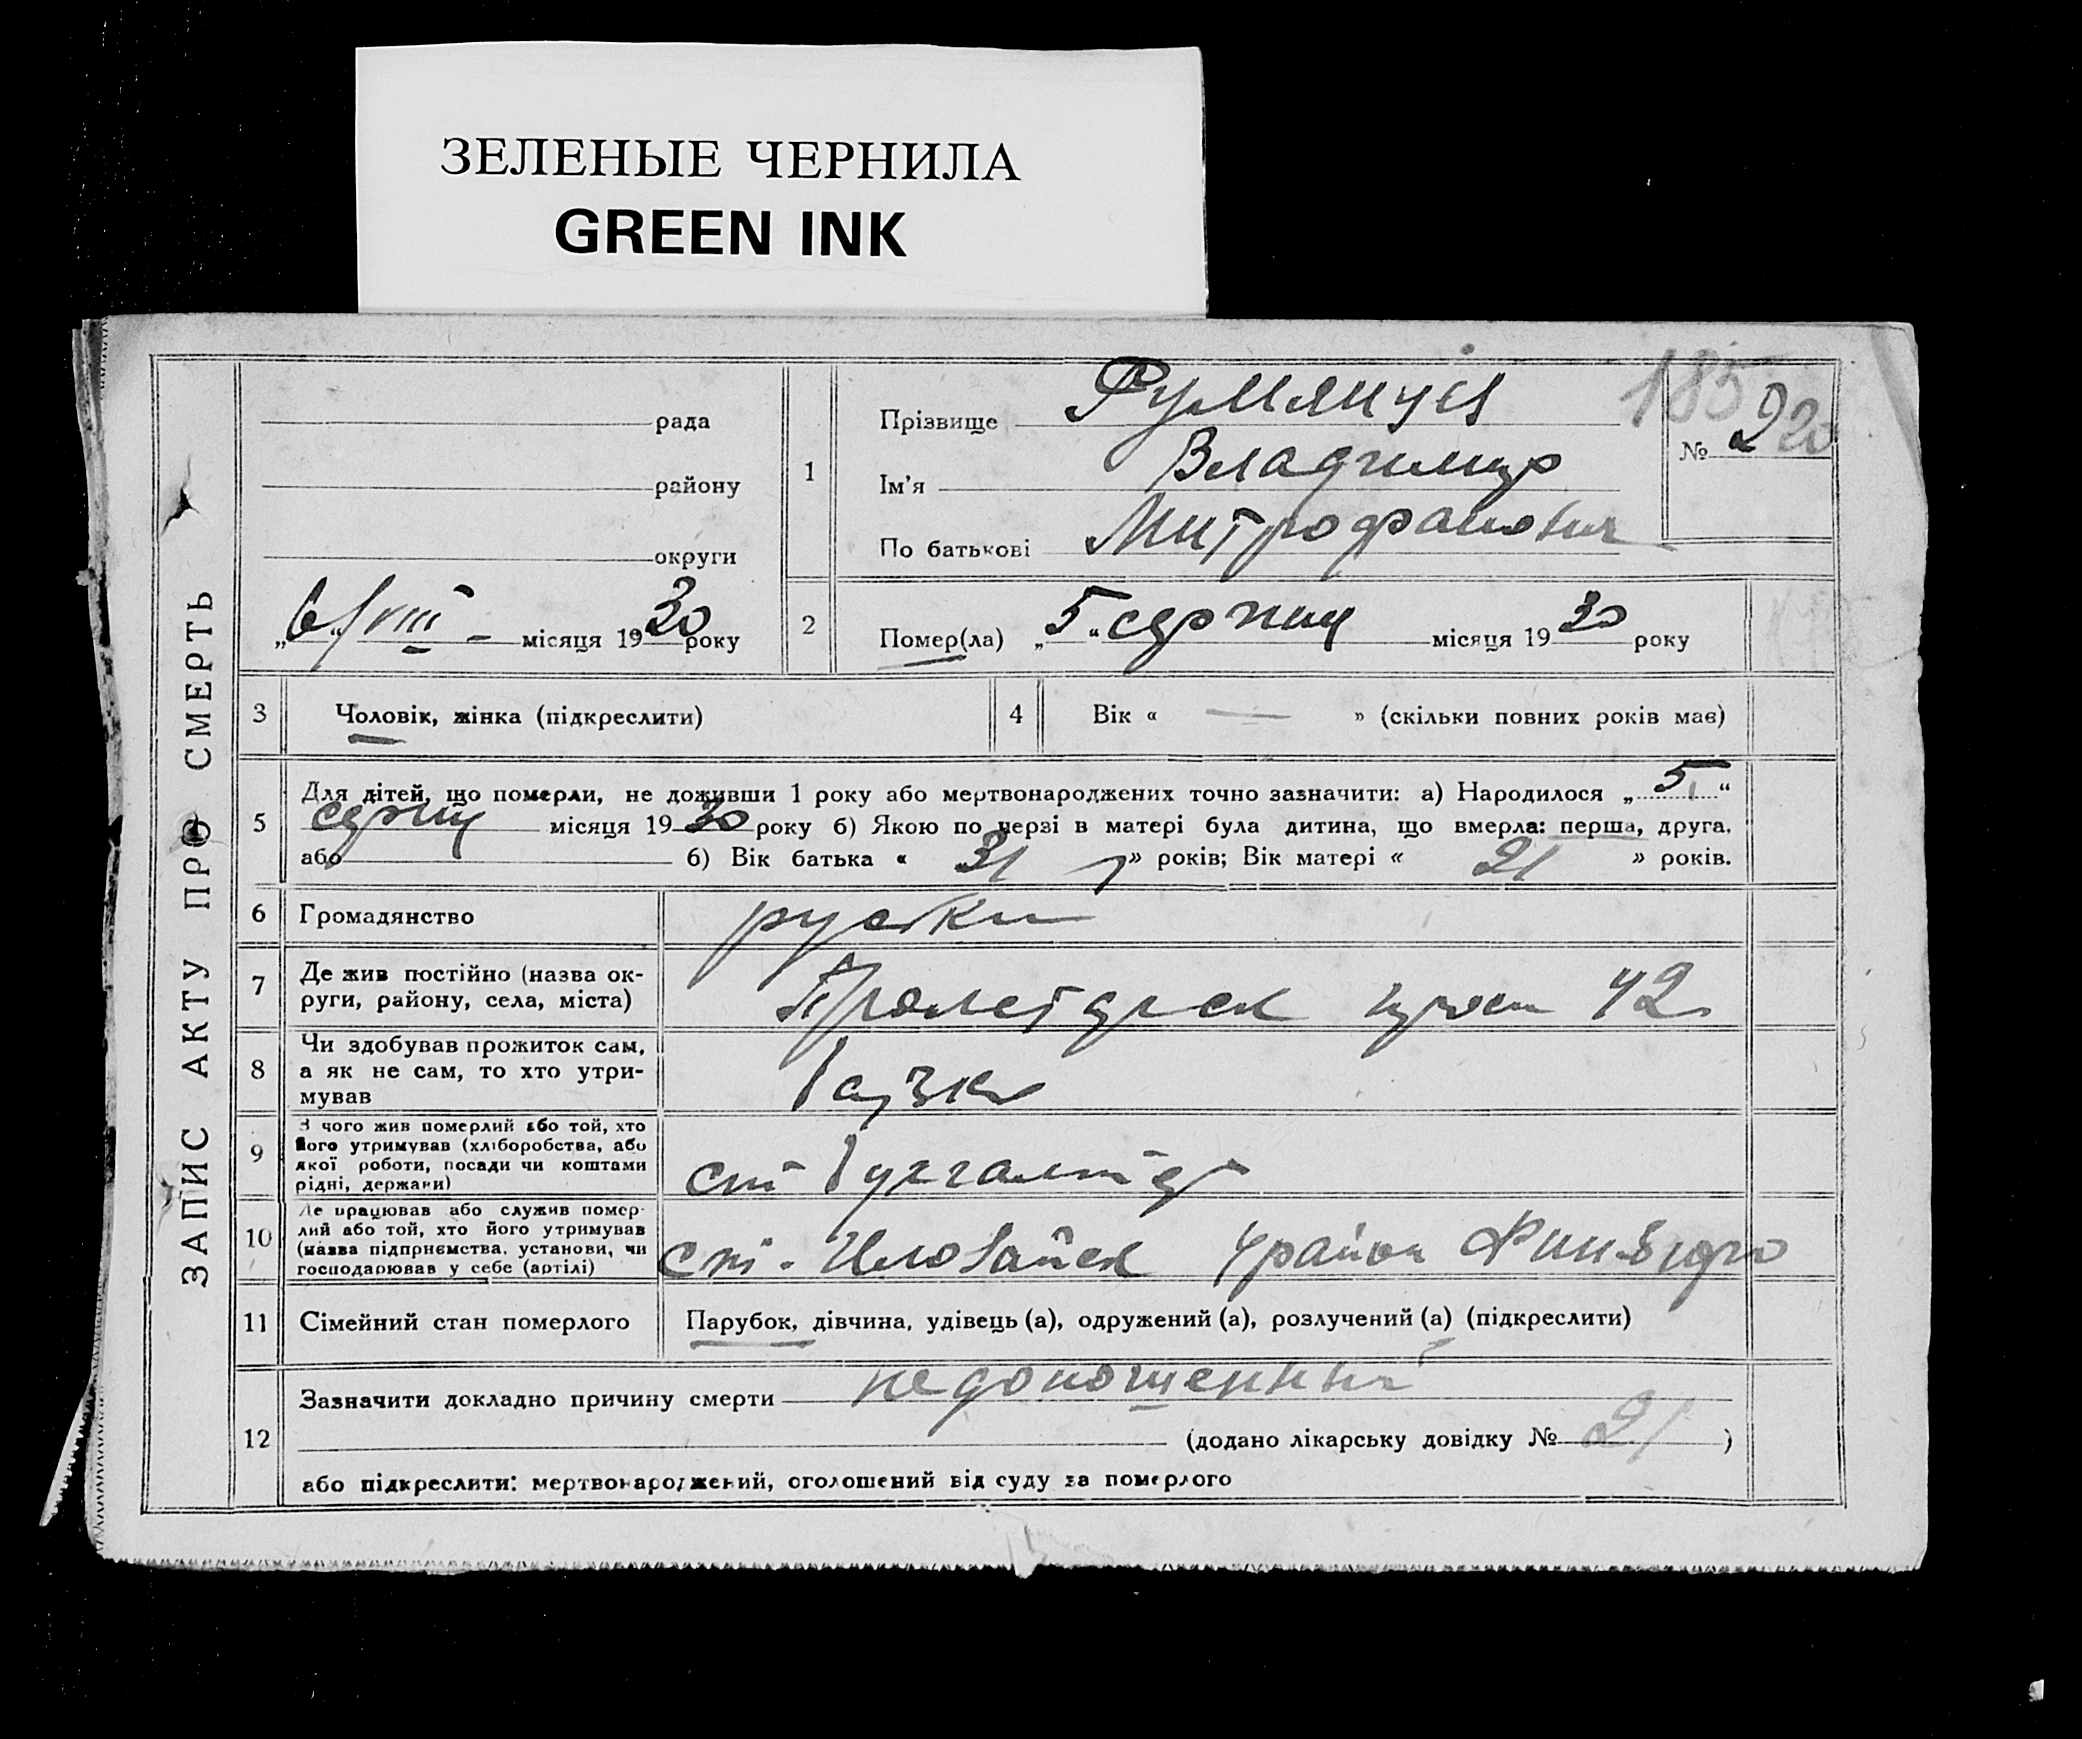 ЗЕЛЕНЫЕ ЧЕРНИЛА
GREEN INK
ЗАПИС АКТУ ПРО СМЕРТЬ
рада
району
округи
„6“ VIII - місяця 1930 року
1
Прізвище Румянцев
Ім'я Владимир
По батькові Митрофанович
185
№ 220
2
Помер(ла) „5“ серпня місяця 1930 року
3
Чоловік, жінка (підкреслити)
4
Вік « — » (скільки повних років має)
5
Для дітей, що померли, не доживши 1 року або мертвонароджених точно зазначити: а) Народилося „5“
серпня місяця 1930 року б) Якою по черзі в матері була дитина, що вмерла: перша, друга,
або б) Вік батька « 31 » років; Вік матері « 21 » років.
6
Громадянство
руский
7
Де жив постійно (назва ок-
руги, району, села, міста)
Пролетарск 42
8
Чи здобував прожиток сам,
а як не сам, то хто утри-
мував
батько
9
З чого жив померлий або той, хто
його утримував (хліборобства, або
якої роботи, посади чи коштами
рідні, держави)
ст бухгалтер
10
Де працював або служив помер-
лий або той, хто його утримував
(назва підприємства, установи, чи
господарював у себе (артілі)
ст. Иловайск район
11
Сімейний стан померлого
Парубок, дівчина, удівець (а), одружений (а), розлучений (а) (підкреслити)
12
Зазначити докладно причину смерти недоношенный
(додано лікарську довідку № 21 )
або підкреслити: мертвонароджений, оголошений від суду за померлого